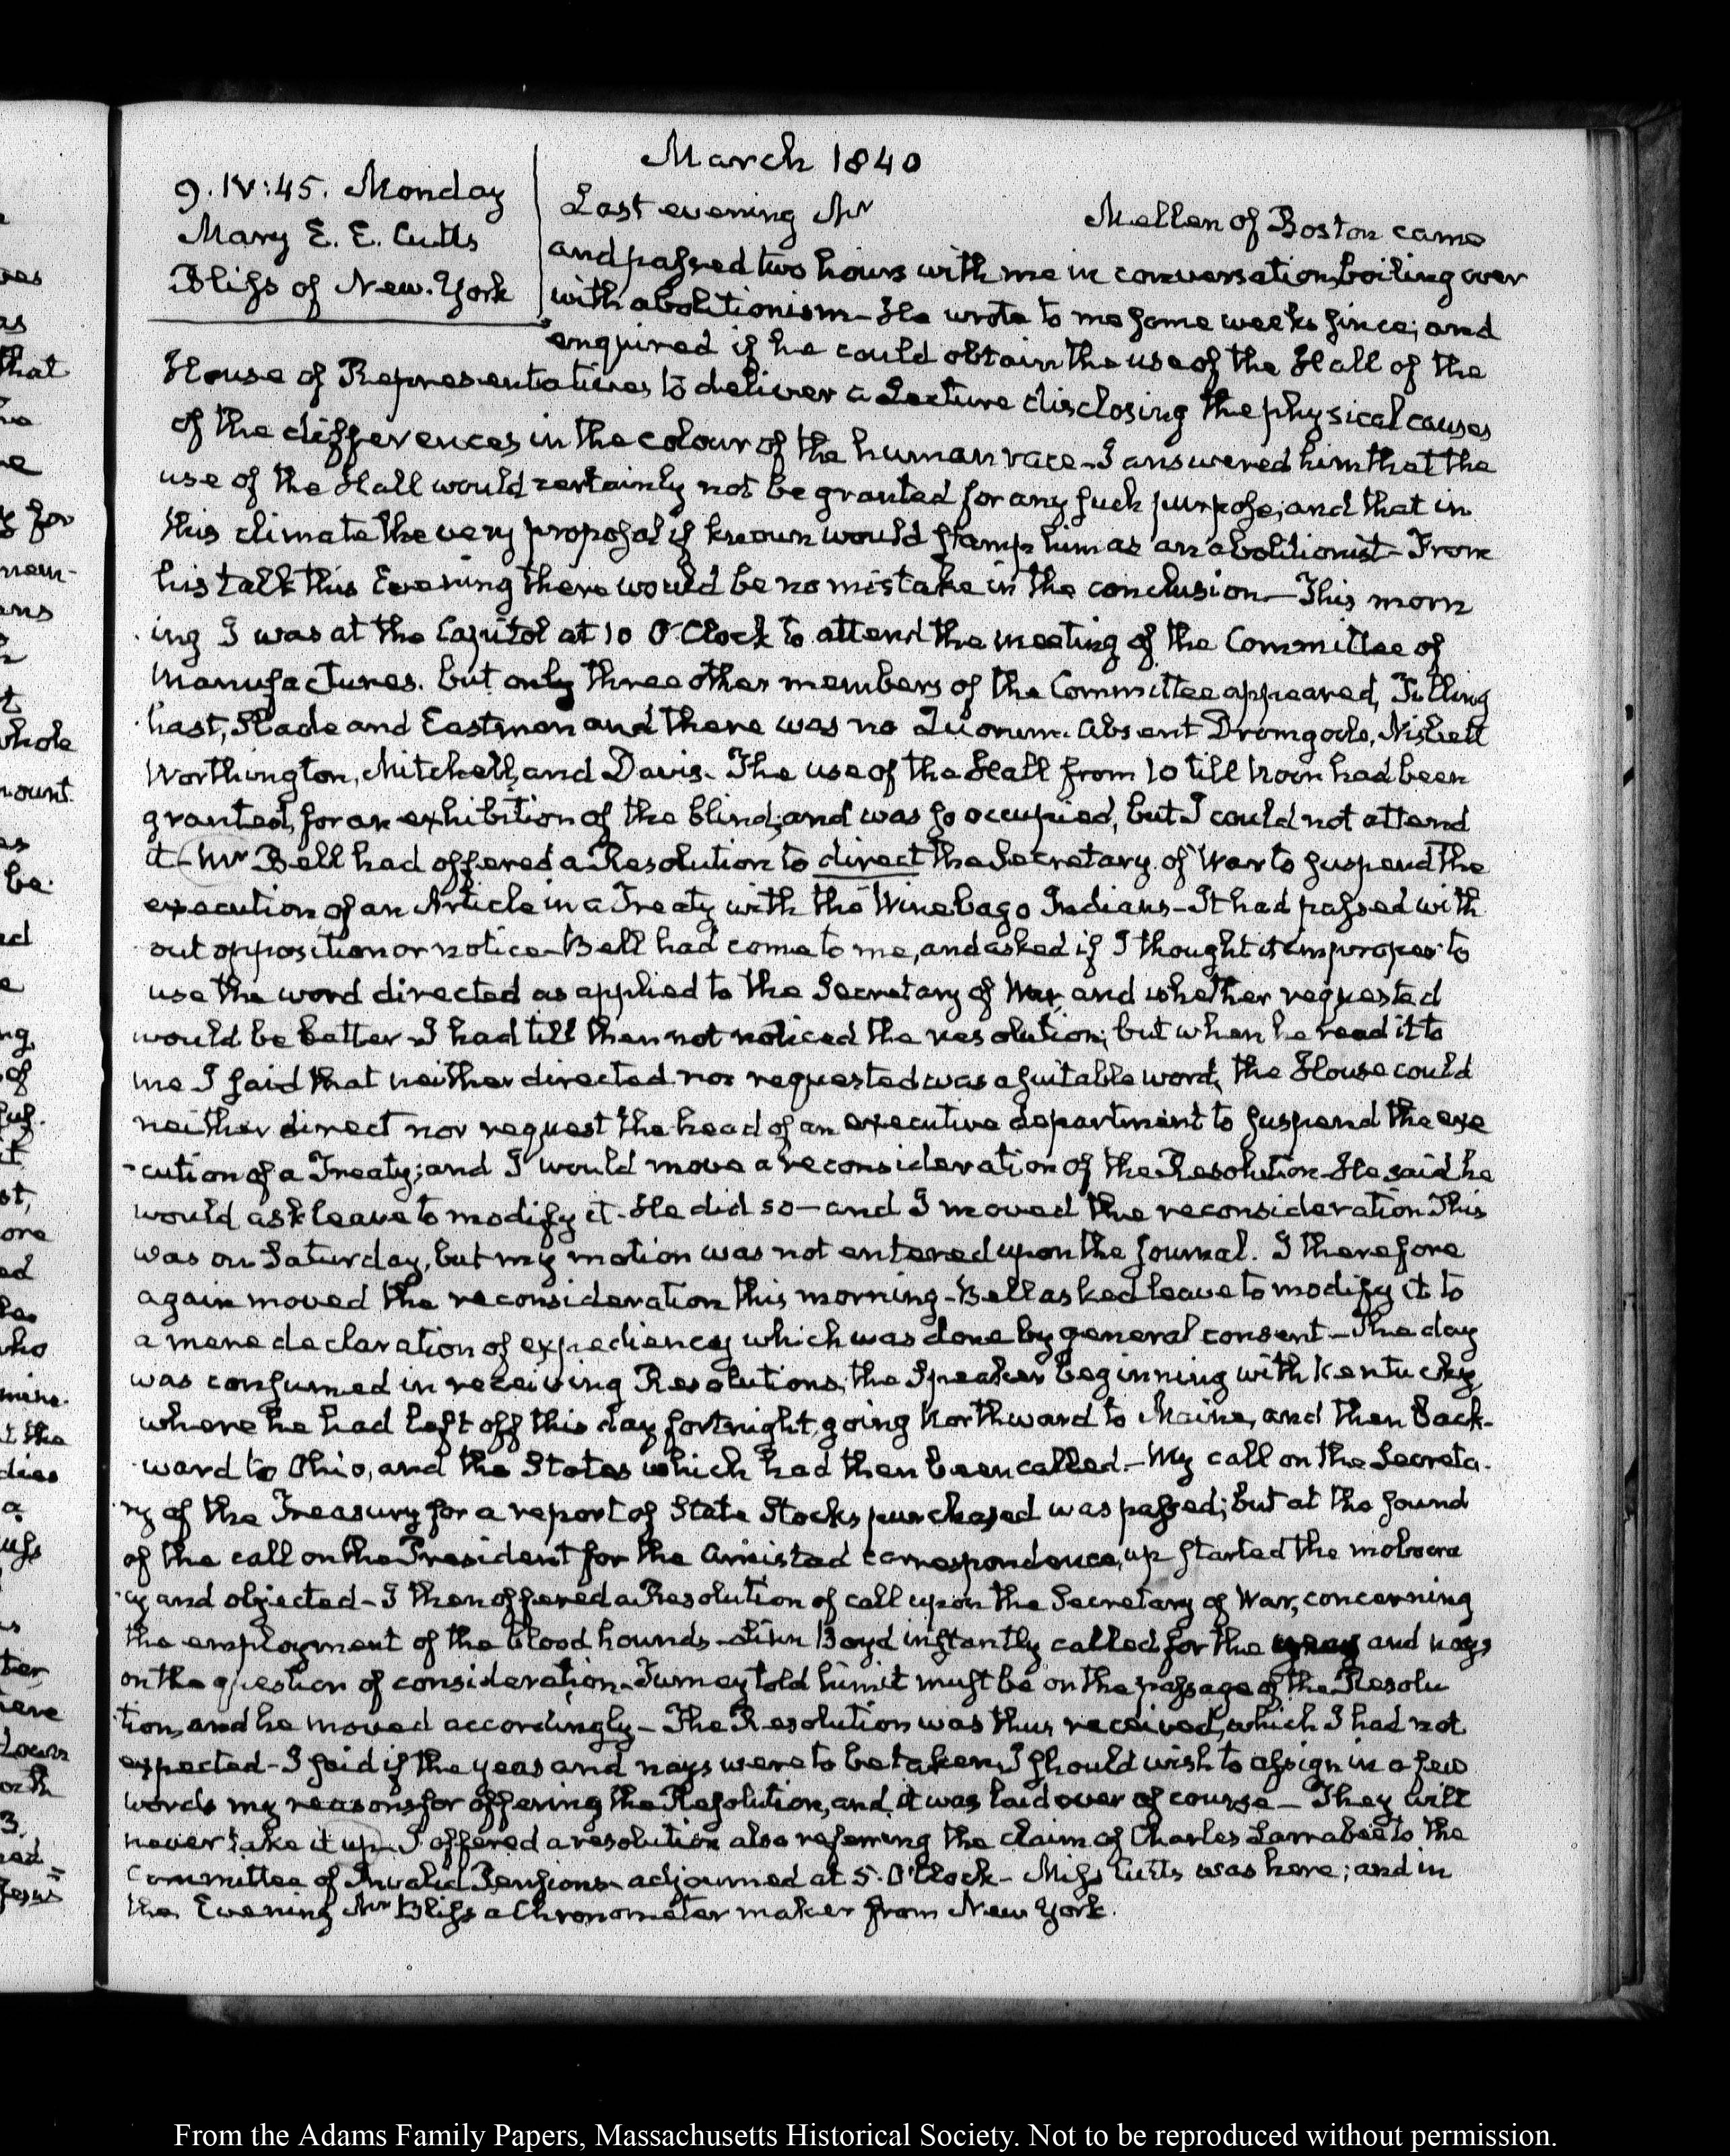 March 1840
9. IV:45. Monday
Mary E. E. Cutts
Bliss of New-York
Last evening Mr Mellen of Boston came
and passed two hours with me in conversation, boiling over
with abolitionism— He wrote to me some weeks since; and
enquired if he could obtain the use of the Hall of the
House of Representatives to deliver a Lecture disclosing the physical causes
of the differences in the colour of the human race— I answered him that the
use of the Hall would certainly not be granted for any such purpose; and that in
this climate the very proposal if known would stamp him as an abolitionist— From
his talk this Evening there would be no mistake in the conclusion— This morn
ing I was at the Capitol at 10 O'Clock to attend the meeting of the Committee of
Manufactures. but only three other members of the Committee appeared, Tilling
hast, Slade and Eastman and there was no Quorum. Absent Dromgoole, Nisbett
Worthington, Mitchell, and Davis. The use of the Hall from 10 till Noon had been
granted, for an exhibition of the blind; and was so occupied, but I could not attend
it— Mr Bell had offered a Resolution to direct the Secretary of War to suspend the
execution of an Article in a Treaty with the Winebago Indians— It had passed with
out opposition or notice— Bell had come to me, and asked if I thought it improper to
use the word directed as applied to the Secretary of War, and whether requested
would be better— I had till then not noticed the resolution; but when he read it to
me I said that neither directed nor requested was a suitable word, the House could
neither direct nor request the head of an executive department to suspend the exe
-cution of a Treaty; and I would move a reconsideration of the Resolution— He said he
would ask leave to modify it— He did so— and I moved the reconsideration This
was on Saturday, but my motion was not entered upon the Journal. I therefore
again moved the reconsideration this morning— Bell asked leave to modify it to
a mere declaration of expediency which was done by general consent— The day
was consumed in receiving Resolutions; the Speaker beginning with Kentucky,
where he had left off this day fortnight, going Northward to Maine, and then back-
ward to Ohio, and the States which had then been called.— My call on the Secreta-
ry of the Treasury for a report of State Stocks purchased was passed; but at the sound
of the call on the President for the Amistad correspondence, up started the mobocra
-cy and objected— I then offered a Resolution of call upon the Secretary of War, concerning
the employment of the blood hounds— Linn Boyd instantly called for the and nays
on the question of consideration— Turney told him it must be on the passage of the Resolu
-tion, and he moved accordingly— The Resolution was thus received, which I had not
expected— I said if the yeas and nays were to be taken, I should wish to assign in a few
words my reasons for offering the Resolution, and it was laid over of course— They will
never take it up— I offered a resolution also referring the claim of Charles Larrabee to the
Committee of Invalid Pensions— adjourned at 5. O'Clock— Miss Cutts was here; and in
the Evening Mr Bliss a Chronometer maker from New York.
From the Adams Family Papers, Massachusetts Historical Society. Not to be reproduced without permission.